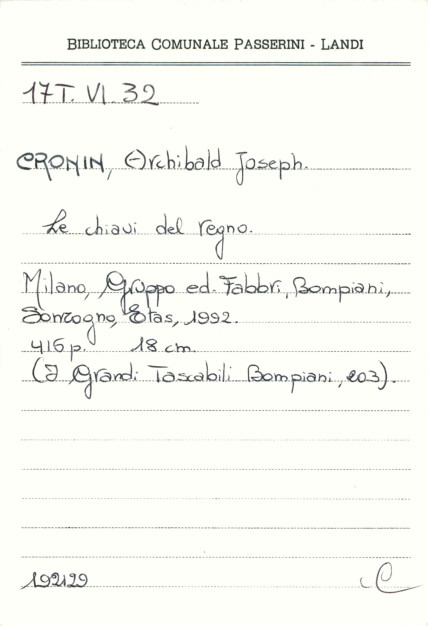 BIBLIOTECA COMUNALE PASSERINI - LANDI
17T. VI. 32
CRONIN, Archibald Joseph.
Le chiavi del regno.
Milano, Gruppo ed. Fabbri, Bompiani,
Sonzogno, Etas, 1992.
416 p. 18 cm.
(I Grandi Tascabili Bompiani, 203).
192129
C